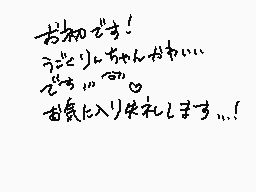 お初です!
うごくりんちゃんかわいい
です,,, ♡
お気に入り失礼します,,,!